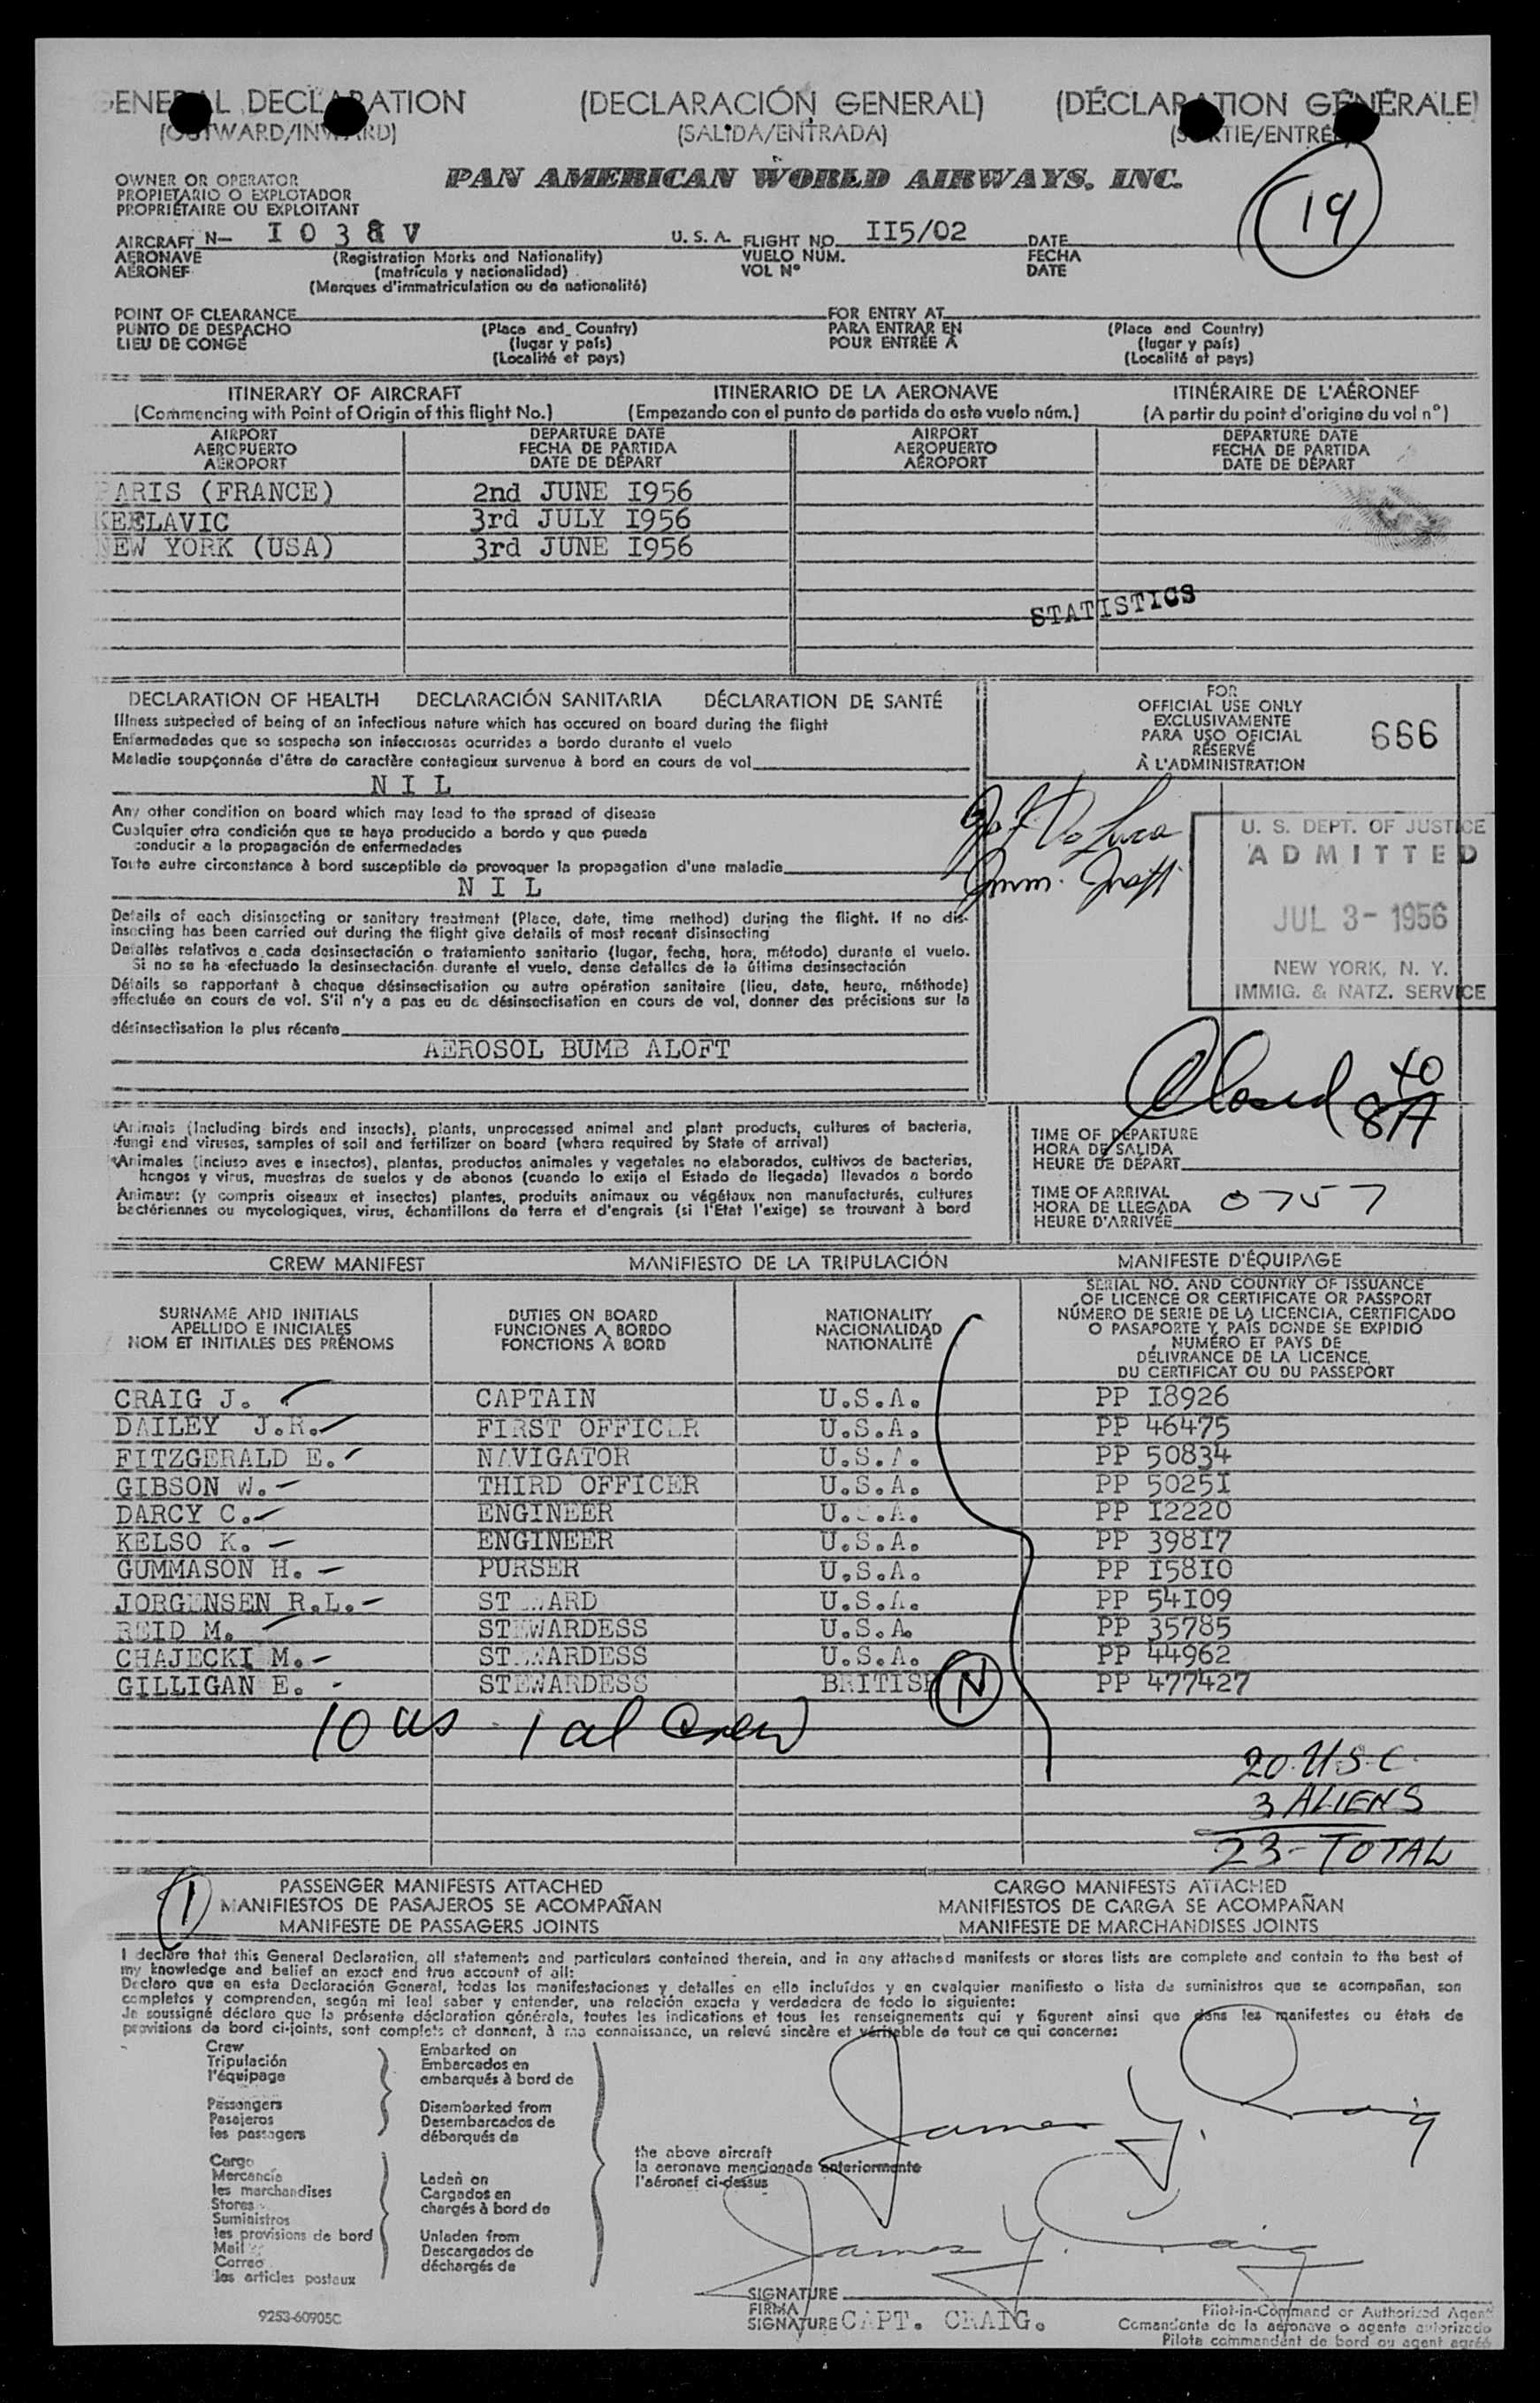 GENERAL DECLARATION (DECLARACIÓN GENERAL) (DÉCLARATION GÉNÉRALE)
(OUTWARD/INWARD) (SALIDA/ENTRADA) (SORTIE/ENTRÉE)
OWNER OR OPERATOR
PROPIETARIO O EXPLOTADOR
PROPRIÉTAIRE OU EXPLOITANT
PAN AMERICAN WORLD AIRWAYS, INC.
19
AIRCRAFT N- I 0 3 8 V U. S. A. FLIGHT NO. II5/02 DATE
AERONAVE (Registration Marks and Nationality) VUELO NÚM. FECHA
AÉRONEF (matrícula y nacionalidad) VOL Nº DATE
(Marques d'immatriculation ou de nationalité)
POINT OF CLEARANCE FOR ENTRY AT
PUNTO DE DESPACHO (Place and Country) PARA ENTRAR EN (Place and Country)
LIEU DE CONGÉ (lugar y país) POUR ENTRÉE A (lugar y país)
(Localité et pays) (Localité et pays)
ITINERARY OF AIRCRAFT ITINERARIO DE LA AERONAVE ITINÉRAIRE DE L'AÉRONEF
(Commencing with Point of Origin of this flight No.) (Empezando con el punto de partida de este vuelo núm.) (A partir du point d'origine du vol nº)
AIRPORT DEPARTURE DATE AIRPORT DEPARTURE DATE
AEROPUERTO FECHA DE PARTIDA AEROPUERTO FECHA DE PARTIDA
AÉROPORT DATE DE DÉPART AÉROPORT DATE DE DÉPART
PARIS (FRANCE) 2nd JUNE I956
KEFLAVIC 3rd JULY I956
NEW YORK (USA) 3rd JUNE I956
STATISTICS
DECLARATION OF HEALTH DECLARACIÓN SANITARIA DÉCLARATION DE SANTÉ
Illness suspected of being of an infectious nature which has occured on board during the flight
Enfermedades que se sospecha son infecciosas ocurridas a bordo durante el vuelo
Maladie soupçonnée d'être de caractère contagieux survenue à bord en cours de vol
N I L
Any other condition on board which may lead to the spread of disease
Cualquier otra condición que se haya producido a bordo y que pueda
conducir a la propagación de enfermedades
Toute autre circonstance à bord susceptible de provoquer la propagation d'une maladie
N I L
Details of each disinsecting or sanitary treatment (Place, date, time method) during the flight. If no dis-
insecting has been carried out during the flight give details of most recent disinsecting
Detalles relativos a cada desinsectación o tratamiento sanitario (lugar, fecha, hora, método) durante el vuelo.
Si no se ha efectuado la desinsectación durante el vuelo, dense detalles de la última desinsectación
Détails se rapportant à chaque désinsectisation ou autre opération sanitaire (lieu, date, heure, méthode)
effectuée en cours de vol. S'il n'y a pas eu de désinsectisation en cours de vol, donner des précisions sur la
désinsectisation la plus récente
AEROSOL BUMB ALOFT
FOR
OFFICIAL USE ONLY
EXCLUSIVAMENTE
PARA USO OFICIAL
RÉSERVÉ
À L'ADMINISTRATION
666
De Luca
Imm.
U. S. DEPT. OF JUSTICE
ADMITTED
JUL 3- 1956
NEW YORK, N. Y.
IMMIG. & NATZ. SERVICE
Closed 40
8A
Animals (Including birds and insects), plants, unprocessed animal and plant products, cultures of bacteria,
fungi and viruses, samples of soil and fertilizer on board (where required by State of arrival)
Animales (incluso aves e insectos), plantas, productos animales y vegetales no elaborados, cultivos de bacterias,
hongos y virus, muestras de suelos y de abonos (cuando lo exija el Estado de llegada) llevados a bordo
Animaux (y compris oiseaux et insectes) plantes, produits animaux ou végétaux non manufacturés, cultures
bactériennes ou mycologiques, virus, échantillons de terre et d'engrais (si l'Etat l'exige) se trouvant à bord
TIME OF DEPARTURE
HORA DE SALIDA
HEURE DE DÉPART
TIME OF ARRIVAL
HORA DE LLEGADA 0757
HEURE D'ARRIVÉE
CREW MANIFEST MANIFIESTO DE LA TRIPULACIÓN MANIFESTE D'ÉQUIPAGE
SURNAME AND INITIALS
APELLIDO E INICIALES
NOM ET INITIALES DES PRÉNOMS
DUTIES ON BOARD
FUNCIONES A BORDO
FONCTIONS À BORD
NATIONALITY
NACIONALIDAD
NATIONALITÉ
SERIAL NO. AND COUNTRY OF ISSUANCE
OF LICENCE OR CERTIFICATE OR PASSPORT
NÚMERO DE SERIE DE LA LICENCIA, CERTIFICADO
O PASAPORTE Y PAÍS DONDE SE EXPIDIÓ
NUMÉRO ET PAYS DE
DÉLIVRANCE DE LA LICENCE,
DU CERTIFICAT OU DU PASSEPORT
CRAIG J. CAPTAIN U.S.A. PP I8926
DAILEY J.R. FIRST OFFICER U.S.A. PP 46475
FITZGERALD E. NAVIGATOR U.S.A. PP 50834
GIBSON W. THIRD OFFICER U.S.A. PP 5025I
DARCY C. ENGINEER U.S.A. PP I2220
KELSO K. ENGINEER U.S.A. PP 398I7
GUMMASON H. PURSER U.S.A. PP I58I0
JORGENSEN R.L. STEWARD U.S.A. PP 54I09
REID M. STEWARDESS U.S.A. PP 35785
CHAJECKI M. STEWARDESS U.S.A. PP 44962
GILLIGAN E. STEWARDESS BRITISH N PP 477427
10 us 1 al Crew
20 U.S.C.
3 ALIENS
23- TOTAL
1
PASSENGER MANIFESTS ATTACHED CARGO MANIFESTS ATTACHED
MANIFIESTOS DE PASAJEROS SE ACOMPAÑAN MANIFIESTOS DE CARGA SE ACOMPAÑAN
MANIFESTE DE PASSAGERS JOINTS MANIFESTE DE MARCHANDISES JOINTS
I declare that this General Declaration, all statements and particulars contained therein, and in any attached manifests or stores lists are complete and contain to the best of
my knowledge and belief an exact and true account of all:
Declaro que en esta Declaración General, todas las manifestaciones y detalles en ella incluídos y en cualquier manifiesto o lista de suministros que se acompañan, son
completos y comprenden, según mi leal saber y entender, una relación exacta y verdadera de todo lo siguiente:
Je soussigné déclare que la présente déclaration générale, toutes les indications et tous les renseignements qui y figurent ainsi que dans les manifestes ou états de
provisions de bord ci-joints, sont complets et donnent, à ma connaissance, un relevé sincère et véritable de tout ce qui concerne:
Crew
Tripulación
l'équipage
Passengers
Pasajeros
les passagers
Cargo
Mercancía
les marchandises
Stores
Suministros
les provisions de bord
Mail
Correo
les articles postaux
Embarked on
Embarcados en
embarqués à bord de
Disembarked from
Desembarcados de
débarqués de
Laden on
Cargados en
chargés à bord de
Unladen from
Descargados de
déchargés de
the above aircraft
la aeronave mencionada anteriormente
l'aéronef ci-dessus
James Y. Craig
James Y. Craig
SIGNATURE
FIRMA
SIGNATURE CAPT. CRAIG.
Pilot-in-Command or Authorized Agent
Comandante de la aeronave o agente autorizado
Pilote commandant de bord ou agent agréé
9253-60905C